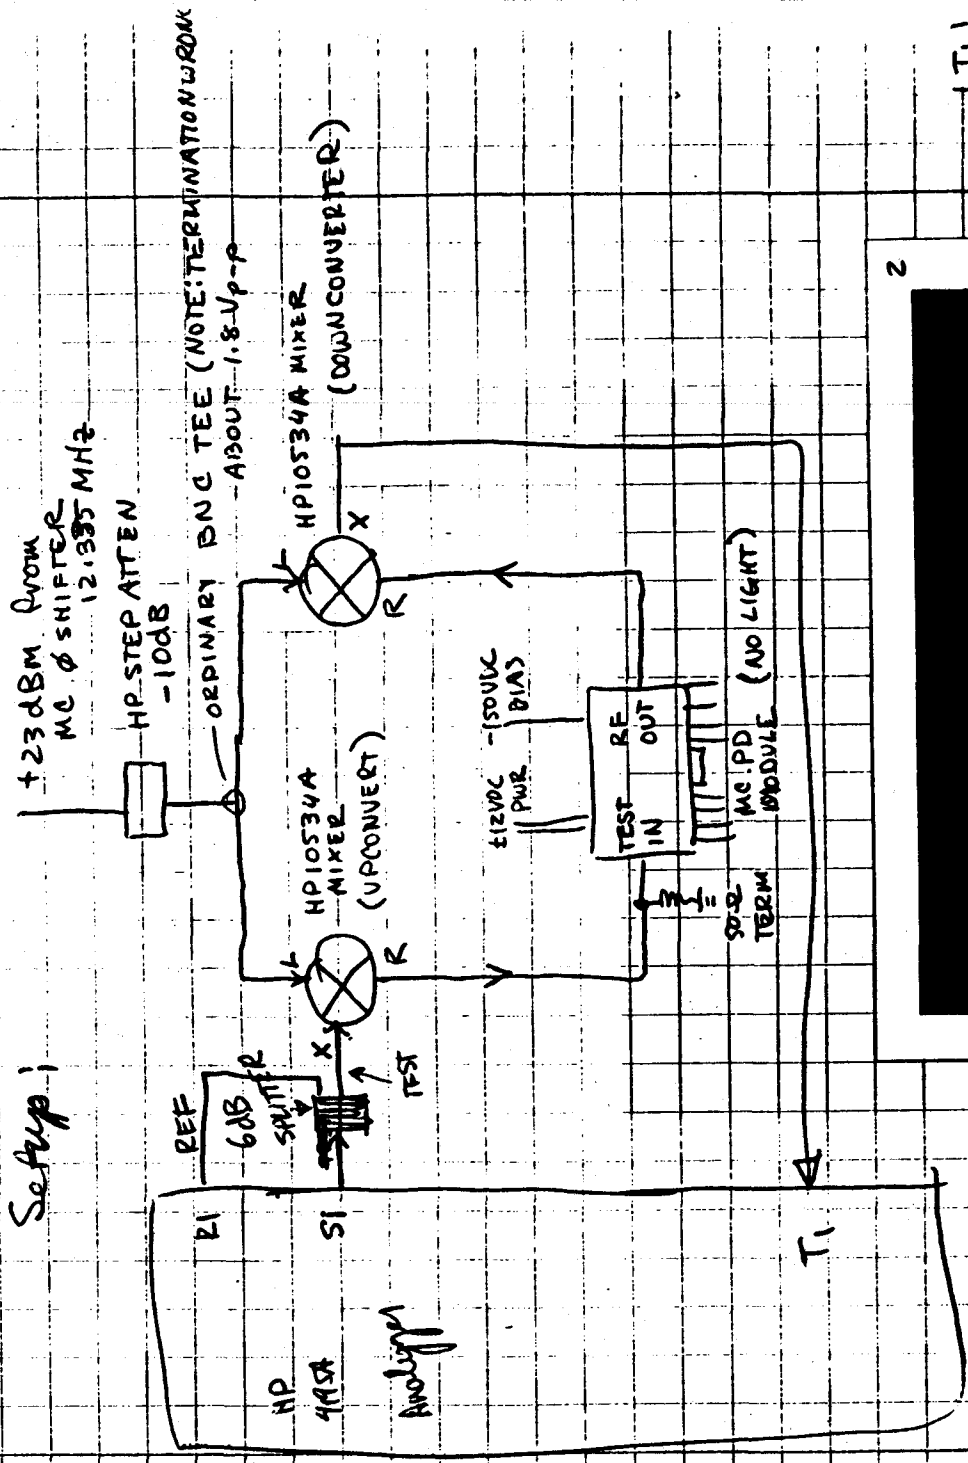 Setup:
+23 dBm from
MC Ø SHIFTER
12.335 MHz
HP STEP ATTEN
-10dB
ORDINARY BNC TEE (NOTE: TERMINATION WRONG
ABOUT 1.8 Vp-p
HP10534A MIXER
(DOWNCONVERTER)
HP10534A
MIXER
(UPCONVERT)
L
L
X
X
R
R
REF
6dB
SPLITTER
TEST
R1
S1
T1
HP
4195A
Analyzer
±12VDC
PWR
-150VDC
BIAS
TEST
IN
RF
OUT
50Ω
TERM
MC PD
MODULE
(NO LIGHT)
2
T1